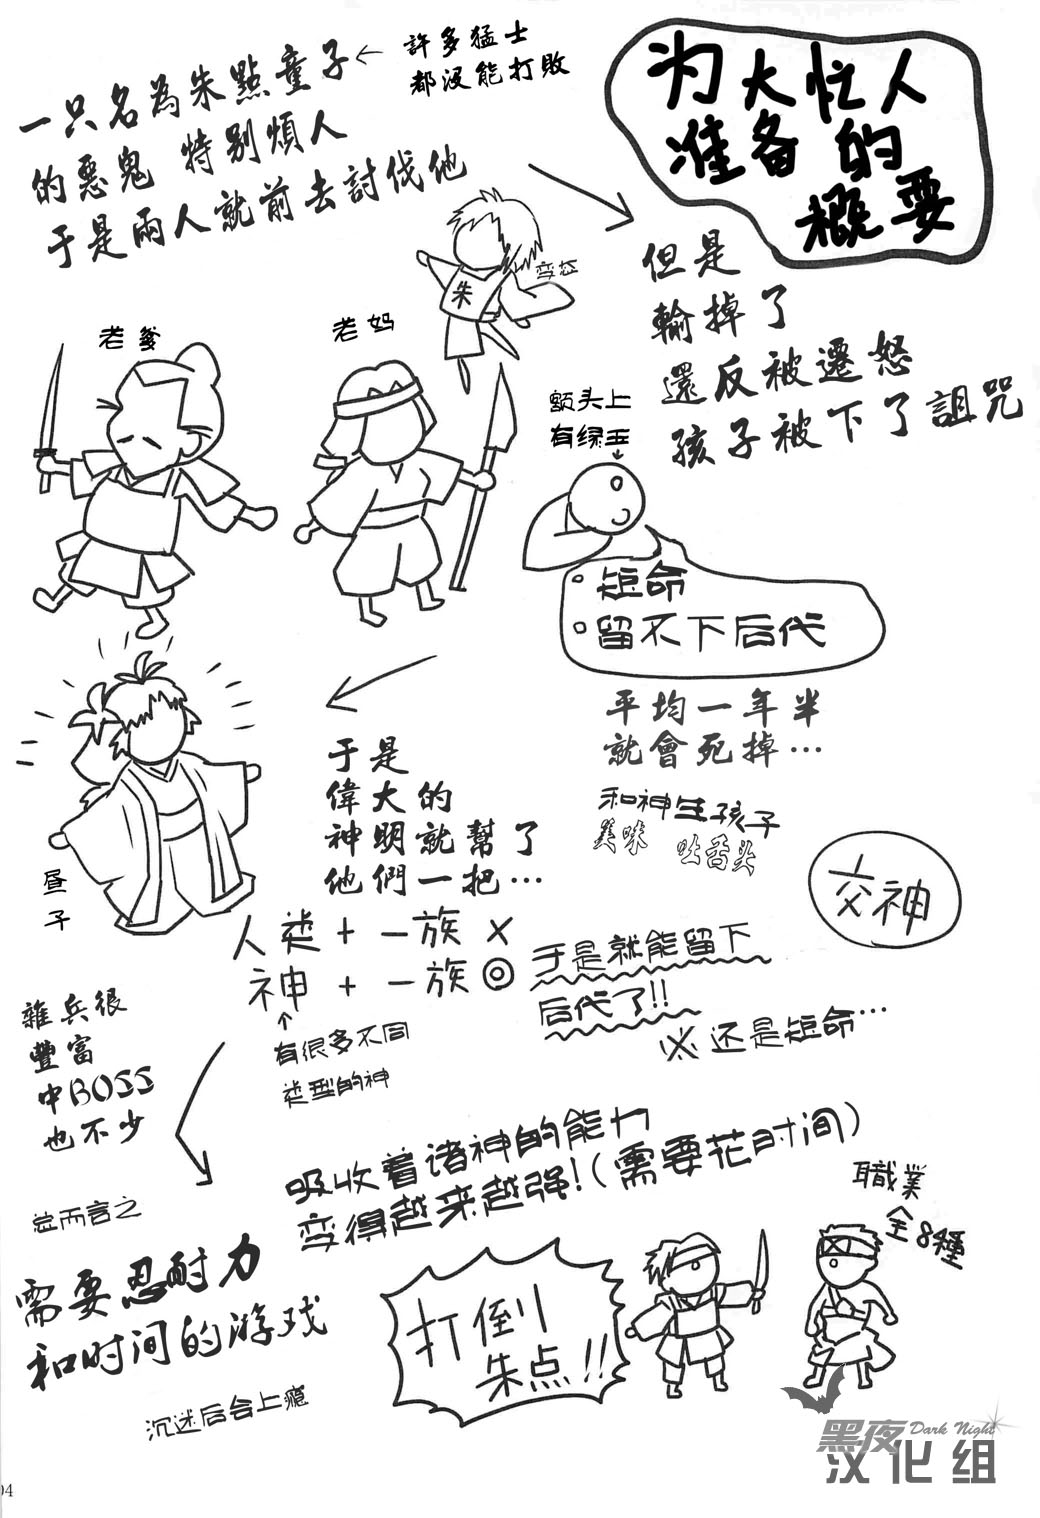 为大忙人
准备的
概要
許多猛士
都没能打敗
一只名為朱點童子
的惡鬼 特别煩人
于是兩人就前去討伐他
老爹
老妈
朱
变态
但是
輸掉了
還反被遷怒
孩子被下了詛咒
额头上
有绿玉
短命
留不下后代
平均一年半
就會死掉…
和神生孩子
美味 吐舌头
交神
于是
偉大的
神明就幫了
他們一把…
昼子
人类+一族×
神+一族◎
有很多不同
类型的神
于是就能留下
后代了!!
※还是短命…
雜兵很
豐富
中BOSS
也不少
吸收着诸神的能力
变得越来越强!(需要花时间)
職業
全8種
总而言之
需要忍耐力
和时间的游戏
沉迷后会上瘾
打倒
朱点!!
黑夜 Dark Night
汉化组
94